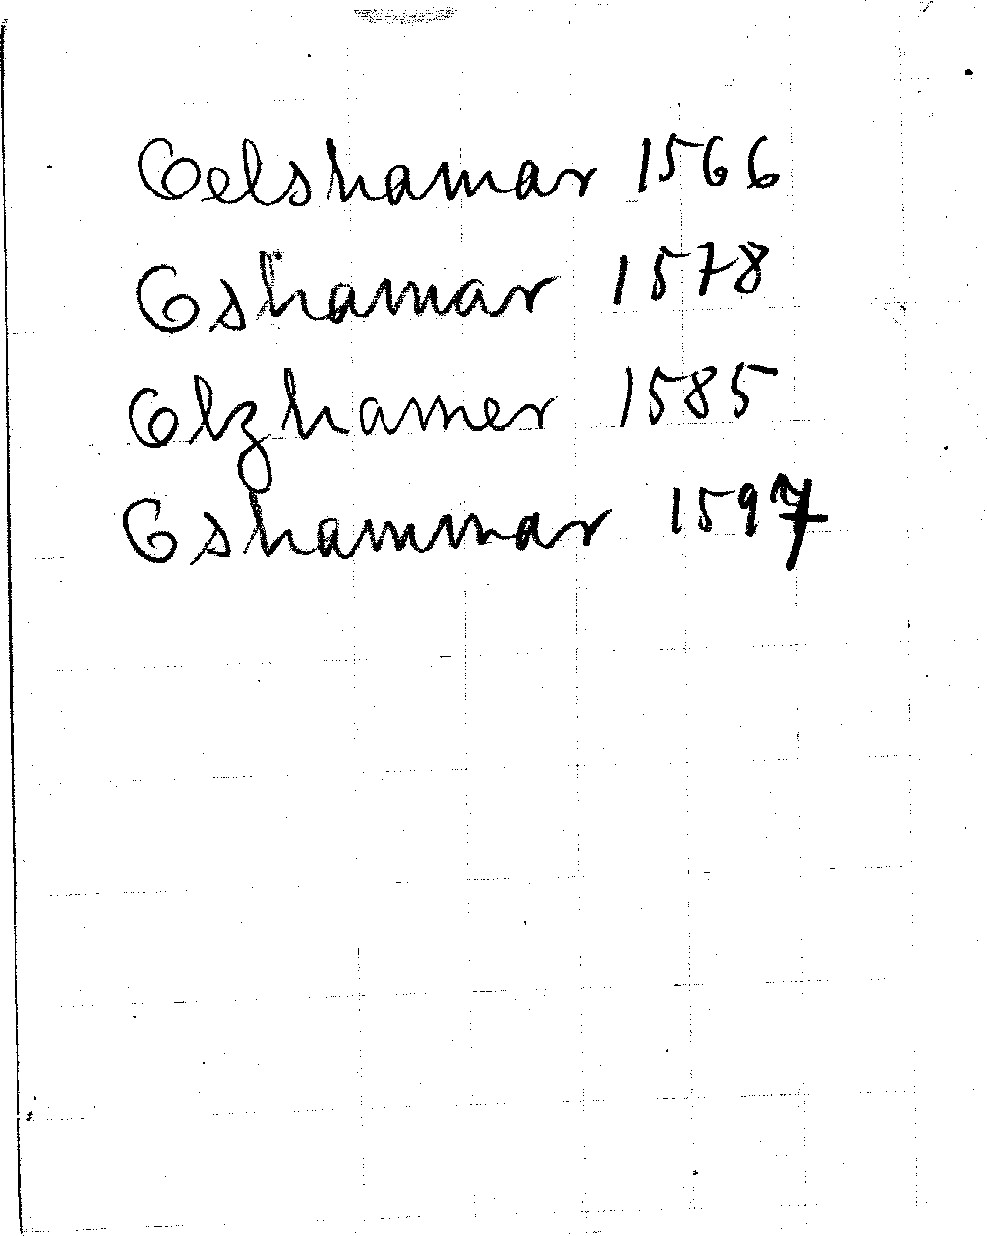 Eelshamar 1566
Eshamar 1578
Elzhamer 1585
Eshammar 1597